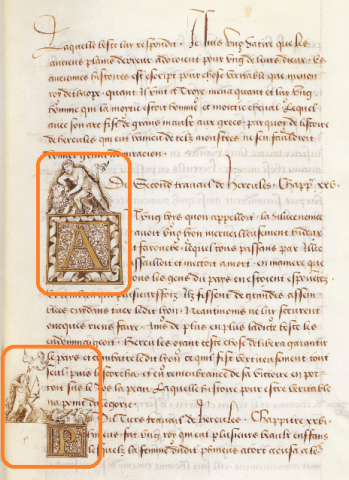 Laquelle beste luy respondit. Je suis ung satire que les
anciens plains derreur adoroient pour ung de leurs dieux. Es
anciennes histoires est escript pour chose veritable que menon
roy dethiope, quant il vint a Troye mena quant et luy ung
homme qui la moytie estoit homme et moitie cheval. Lequel
avec son arc fist de grans maulx aux grecz, par quoy de listoire
de hercules qui eut victoire de telz monstres ne sen fauldroit
donner grant admiracion.
Du Second travail de Hercules. Chapp. xxv.
A
Ung boys quon appelloit la silve nemee
avoit ung lyon merveilleusement hideux
et farouche, lequel tous passans par icelle
assailloit et mettoit a mort, en maniere que
tous les gens du pays en estoient espoventez
plusieurs foiz ilz fissent de grandes assem
blees cuidans tuer ledit lyon. Neantmoins ne luy sceurent
oncques riens faire. Ains de plus en plus ladicte beste les
endommageoit. Hercules oyant ceste chose delibera garantir
le pays et combatre ledit lyon ce quil fist vertueusement tout
seul, puis lescorcha, et en remembrance de sa victoire en por
toit tous les jours la peau. Laquelle histoire pour estre veritable
na point dalegorie.
Du Tiers travail de Hercules. Chappitre xxvi.
P
fut ung roy qui eut plusieurs beaulx enffans
la femme dudit